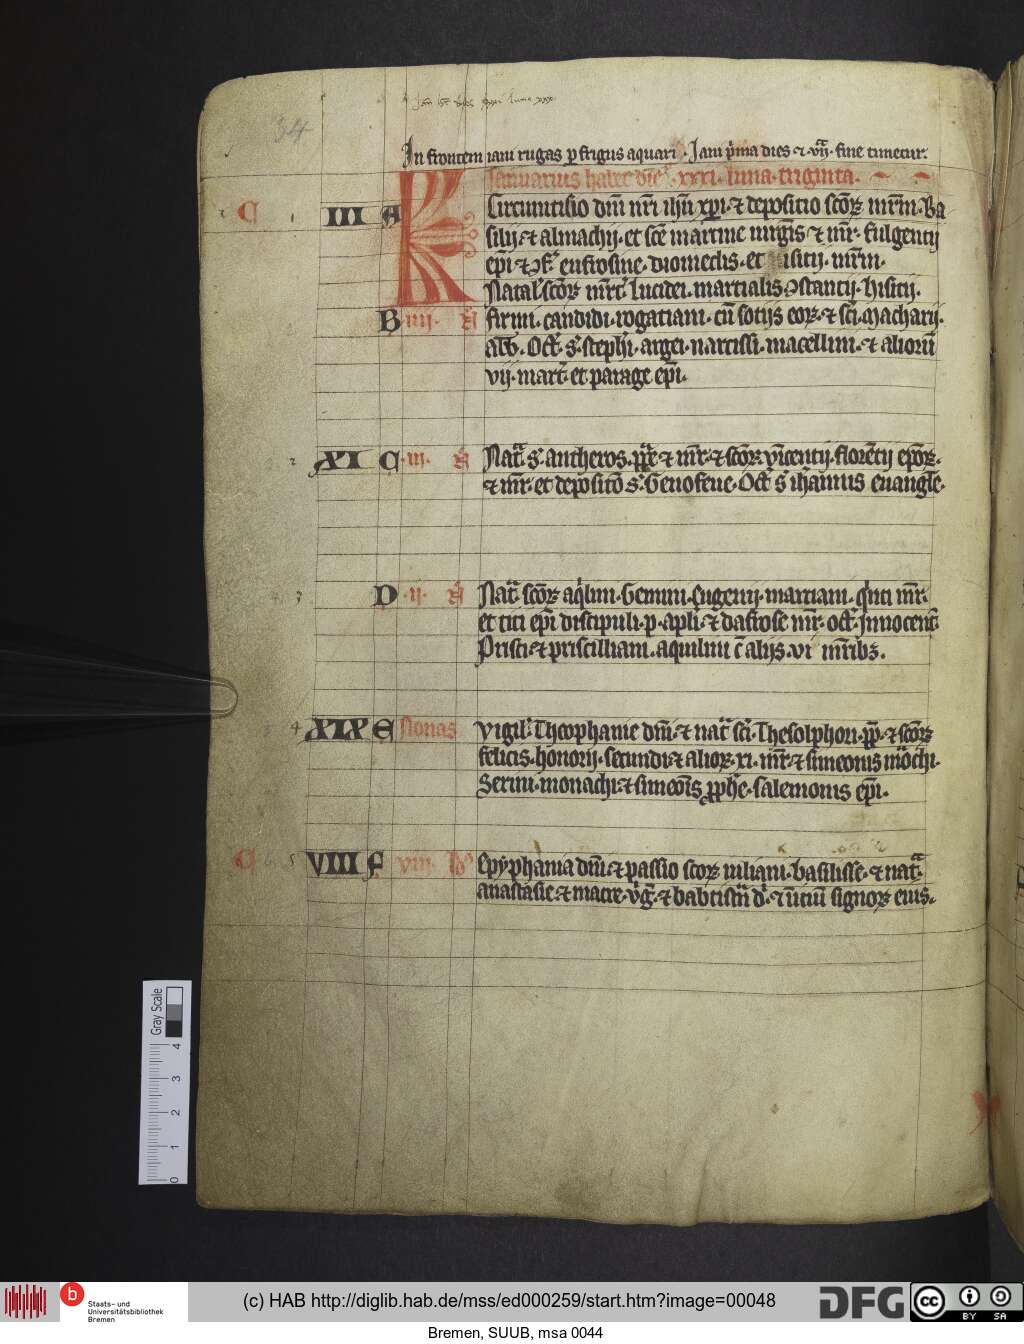 34
In frontem iani rugas ꝑ frigus aquari · Iani p̃ma dies ⁊ vĩj · fine timetur.
Ianuarius habet dies xxxi luna triginta.
C III A K Circumcisio dñi nr̃i ih̃u xp̃i ⁊ depositio scõꝝ mr̃m · Ba
silij ⁊ almachij · et scẽ martine uirgĩs ⁊ mr̃ · fulgentij
ep̃i ⁊ eufrosine · diomedis · et isitij · mr̃m ·
Natal scõꝝ mr̃t lucidei · martialis ꝯstantij · hisitij ·
B iiij · N̄ firmi · candidi · rogatiani · cũ sotijs eoꝝ · ⁊ sc̃i Macharij ·
abb̃ · Oct̃ · s̃ · steph̃i · argei · narcissi · macellini · ⁊ alioruũ
vij · mart̃ · et parage ep̃i ·
2 XI C · iii · N̄ Nat̃ s̃ · antheros · pp̃ ⁊ mr̃ · ⁊ scõꝝ · vincentij · florẽtij ep̃oꝝ ·
⁊ mr̃ · et depositõ s̃ · Genofeue · Oct̃ s̃ ioh̃annis euangl̃e ·
3 D · ii · N̄ Nat̃ scõꝝ aq̃lini · Gemini · Eugenij · marciani · q̃nti mr̃ ·
et titi ep̃i discipuli · p · apl̃i · ⁊ dafrose mr̃ · oct̃ · Innocent̃
Prisci · ⁊ priscilliani · aquilini c̃ alijs · vi mr̃ibꝫ ·
4 XIX E Nonas vigil · Theophanie dñi · ⁊ nat̃ sc̃i · Thesolphori · pp̃ · ⁊ scõꝝ
felicis · honorij · secundi · ⁊ alioꝝ · xi · mr̃ · ⁊ simeonis mõchi ·
Seruii · monachi · ⁊ simeõis ꝓph̃e · salemonis ep̃i ·
C 5 VIII F viii · Id̃ Epyphania dñi · ⁊ passio scoꝝ iuliani · basilisse · ⁊ nat̃ ·
anastasie · ⁊ macre · v̊g̃ · ⁊ babtism̃ d̃ · ⁊ ĩitiũ signoꝝ eius ·
Gray Scale
0 1 2 3 4
b
Staats- und
Universitätsbibliothek
Bremen
(c) HAB http://diglib.hab.de/mss/ed000259/start.htm?image=00048
DFG
cc BY SA
Bremen, SUUB, msa 0044